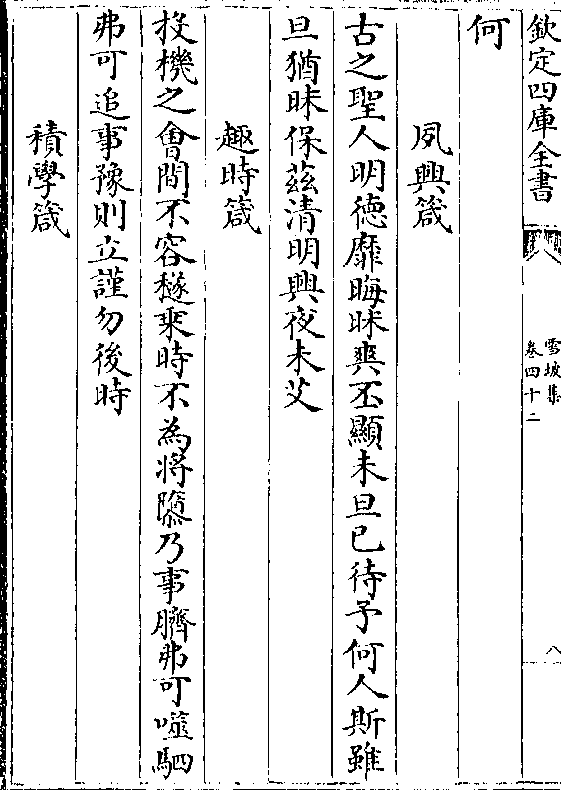 欽定四庫全書
雪坡集
卷四十二
八
何
夙興箴
古之聖人明德靡晦昧爽丕顯未旦已待予何人斯雖
旦猶昧保茲清明興夜未艾
趣時箴
投機之會間不容檖乘時不為將隳乃事臍弗可噬駟
弗可追事豫則立謹勿後時
積學箴